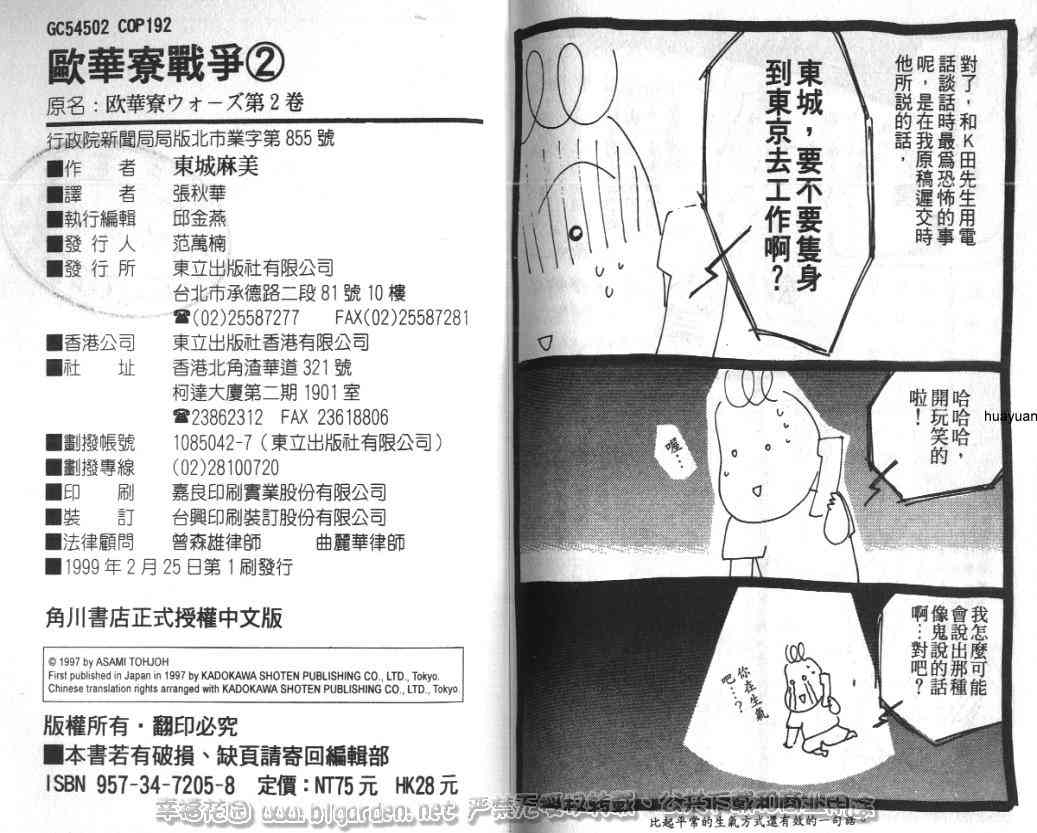 GC54502 COP192
歐華寮戰爭②
原名：欧華寮ウォーズ第2卷
行政院新聞局局版北市業字第855號
■作　者　東城麻美
■譯　者　張秋華
■執行編輯　邱金燕
■發行人　范萬楠
■發行所　東立出版社有限公司
台北市承德路二段81號10樓
☎(02)25587277　FAX(02)25587281
■香港公司　東立出版社香港有限公司
■社　址　香港北角渣華道321號
柯達大廈第二期1901室
☎23862312　FAX 23618806
■劃撥帳號　1085042-7（東立出版社有限公司）
■劃撥專線　(02)28100720
■印　刷　嘉良印刷實業股份有限公司
■裝　訂　台興印刷裝訂股份有限公司
■法律顧問　曾森雄律師　曲麗華律師
■1999年2月25日第1刷發行
角川書店正式授權中文版
© 1997 by ASAMI TOHJOH
First published in Japan in 1997 by KADOKAWA SHOTEN PUBLISHING CO., LTD., Tokyo.
Chinese translation rights arranged with KADOKAWA SHOTEN PUBLISHING CO., LTD., Tokyo.
版權所有・翻印必究
■本書若有破損、缺頁請寄回編輯部
ISBN 957-34-7205-8　定價：NT75元　HK28元
對了，和K田先生用電
話談話時最為恐怖的事
呢，是在我原稿遲交時
他所說的話，
東城，要不要隻身
到東京去工作啊？
哈哈哈，
開玩笑的
啦！
huayuan
喔…
我怎麼可能
會說出那種
像鬼說的話
啊…對吧？
你在生氣
吧…？
比起平常的生氣方式還有效的一句話。
幸福花园 www.blgarden.net 严禁无授权转载、公共下载和商业用途